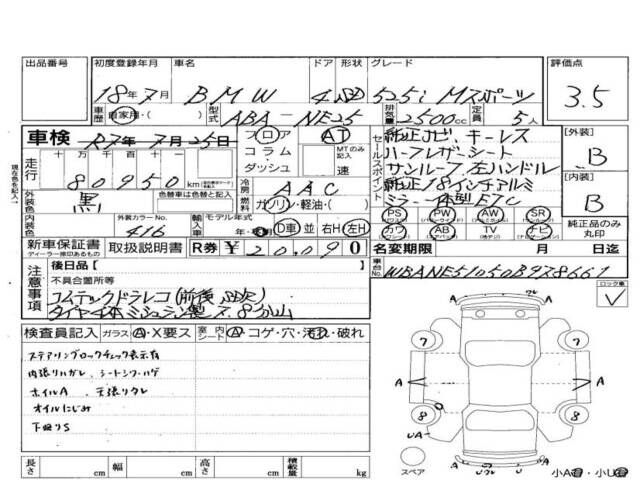 出品番号 初度登録年月 車名 ドア 形状 グレード 評価点
18年7月 BMW 4 SD 525i Mスポーツ 3.5
車歴 自家用・( ) 型式 ABA-NE25 排気量 2500cc 定員 5人
車検 R7年7月25日 フロア AT
コラム MTのみ記入
ダッシュ 速
セールスポイント
純正ナビ、キーレス
ハーフレザーシート
サンルーフ 左ハンドル
純正18インチアルミ
ミラー一体型ETC
外装 B
内装 B
走行 十万 万 千 百 十 一
80950 km
冷房 AAC
外装色 黒 色替車は色替と記入
燃料 ガソリン・軽油・( )
内装色 外装カラーNo. 416
輸入車 モデル年式 年・D車 並 右H・左H
PS PW AW SR
カワ AB TV ナビ
純正品のみ丸印
新車保証書 取扱説明書 R券 ¥20,090
ディーラー捺印あるもの
名変期限 月 日迄
車台No. WBANE51050B978661
現在色を記入
注意事項
後日品【 】
不具合箇所等
コムテックドラレコ(前後
タイヤ4本ミシュラン製 8分山
ロック車
検査員記入 ガラス A・X要ス 室内 シート A・コゲ・穴・汚れ・破れ
ステアリングロックチェック表示有
内張りハガレ、シートシワ・ハゲ
ホイルA 天張りタレ
オイルにじみ
下廻りS
7 7
A A A
8 8
UA
A A
スペア
小A・小U
長さ cm 幅 cm 高さ cm 積載量 kg